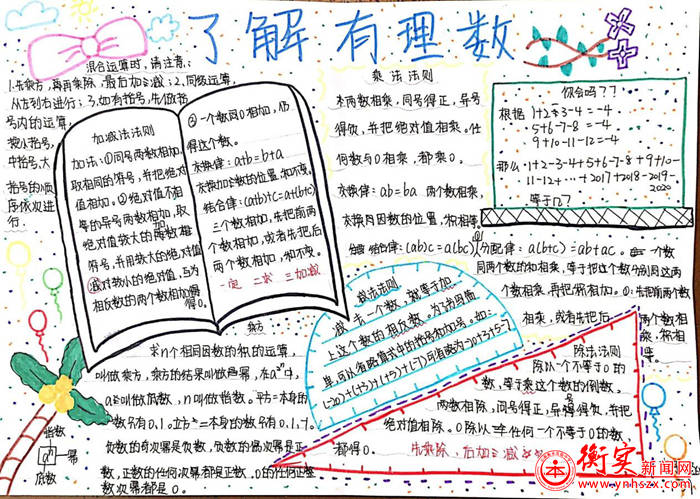 了解有理数
混合运算时,请注意:
1.先乘方,再乘除,最后加减;2.同级运算,
从左到右进行;3.如有括号,先做括
号内的运算,
按小括号,
中括号,大
括号的顺
序依次进
行.
加减法法则
加法:①同号两数相加,
取相同的符号,并把绝对
值相加,②绝对值不相
等的异号两数相加,取
绝对值较大的加数
符号,并用较大的绝对值
减对较小的绝对值,互为
相反数的两个数相加得
得0。
③一个数同0相加,仍
得这个数。
交换律:a+b=b+a
交换加数的位置,和不变。
结合律:(a+b)+c=a+(b+c)
三个数相加,先把前两
个数相加,或者先把后
两个数相加,和不变。
一定 二求 三加减
乘法法则
两数相乘,同号得正,异号
得负,并把绝对值相乘。任
何数与0相乘,都乘0。
交换律:ab=ba 两个数相乘,
交换因数的位置,积相等。
结合律:(ab)c=a(bc)
分配律:a(b+c)=ab+ac。一个数
同两个数的和相乘,等于把这个数分别同这两
个数相乘,再把积相加。
先把前两个数
相乘,或者先把后
两个数相
乘,积相
等
你会吗??
根据 1+2-3-4=-4
5+6-7-8=-4
9+10-11-12=-4
那么 1+2-3-4+5+6-7-8+9+10-
11-12+…+2017+2018-2019-
2020
等于几?
减法法则
减去一个数,就等于加
上这个数的相反数。为了书写简
单,可以省略算式中的括号和加号。如:
(-20)+(+3)+(+5)+(-7)可省略为-20+3+5-7
乘方
求n个相同因数的积的运算,
叫做乘方,乘方的结果叫做幂,在aⁿ中,
a叫做底数,n叫做指数。平方=本身的
数有0,1。立方=本身的数有0,1,-1。
负数的奇次幂是负数,负数的偶次幂是正
数,正数的任何次幂都是正数,0的任何正整
数次幂都是0。
指数
aⁿ 幂
底数
除法法则
除以一个不等于0的
数,等于乘这个数的倒数,
两数相除,同号得正,异号得负,并把
绝对值相除。0除以任何一个不等于0的数,
都得0。
先乘除,后加减
衡实新闻网
www.ynhszx.com